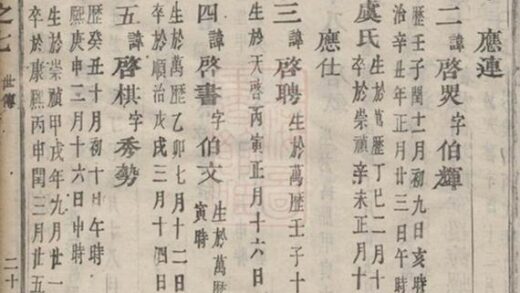 應連
二諱啓煚字伯輝
歷壬子閏十一月初九日亥時
治辛丑年正月廿三日午時
虞氏生於萬歷丁巳二月十
卒於崇禎辛未正月十
應仕
三諱啓聘生於萬歷王子十
生於天啓丙寅正月十六日
四諱啓書字伯文生於萬歷
寅時
生於萬歷乙卯七月十二日
卒於順治庚戌三月十四日
五諱啓棋字秀勢
歷癸丑十月初十日午時
熙庚申三月十六日申時
生於崇禎甲戌年九月廿一
卒於康熙丙申閏三月廿五
之七 世傳 二十